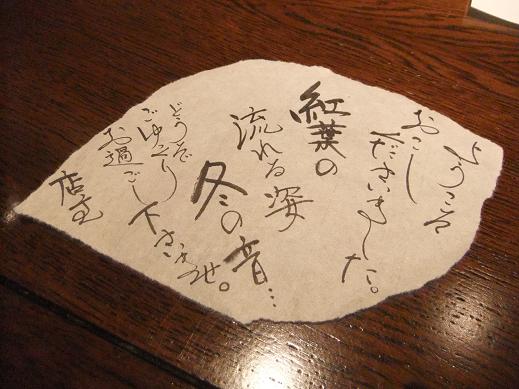 ようこそ
おこし
くださいました。
紅葉の
流れる姿
冬の音…
どうぞ
ごゆっくり
お過ごし
下さいませ。
店主